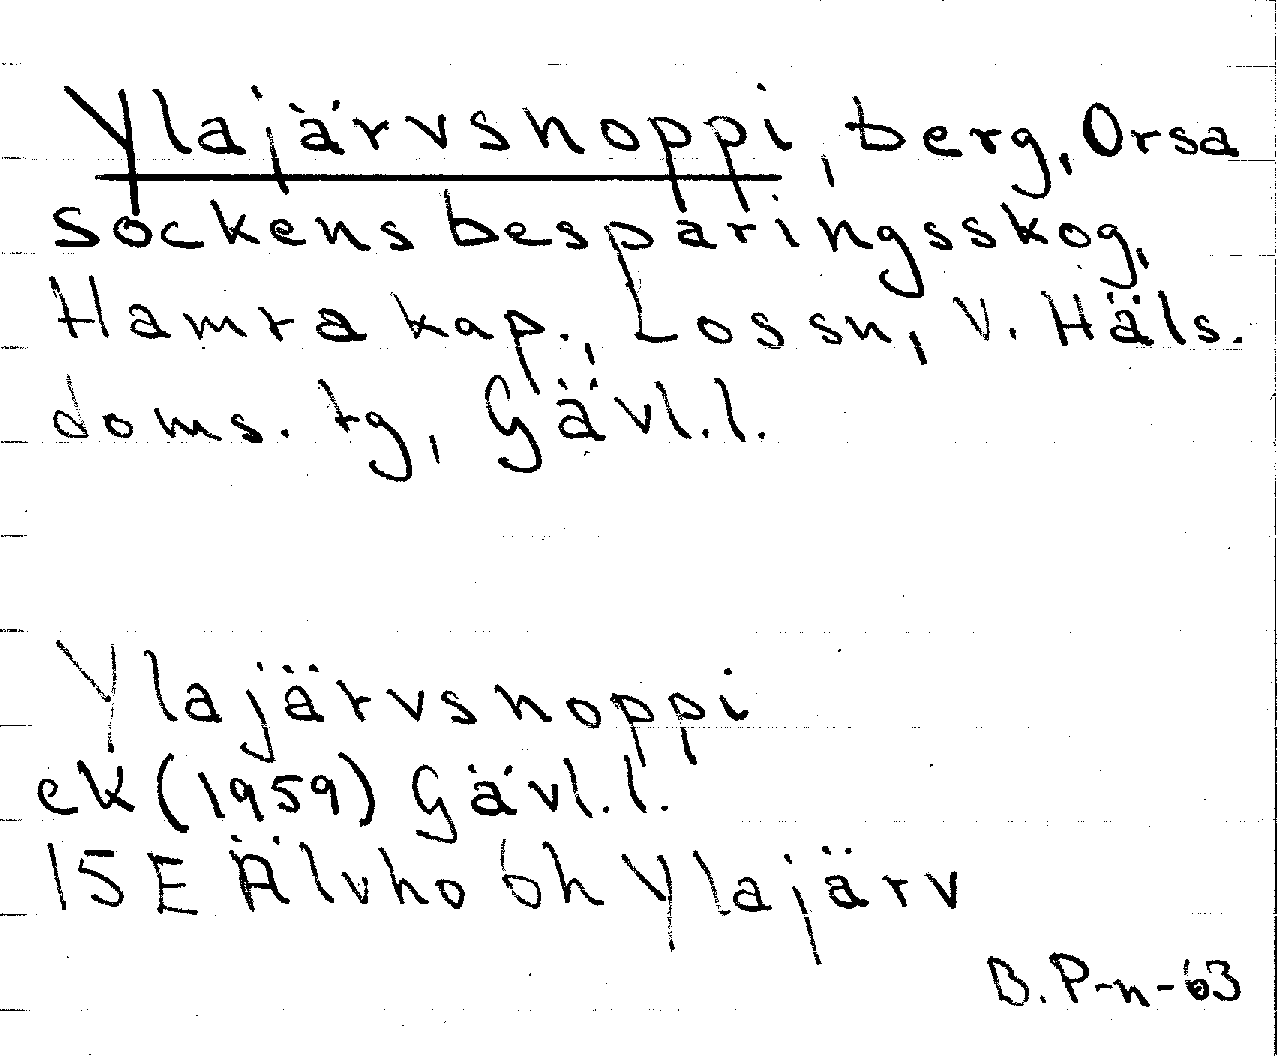 Ylajärvsnoppi, berg, Orsa
sockens besparingsskog,
Hamra kap., Lossn, V. Häls.
doms. tg, Gävl.l.
Ylajärvsnoppi
ek (1959) Gävl.l.
15E Älvho 6h Ylajärv
B. P-n-63